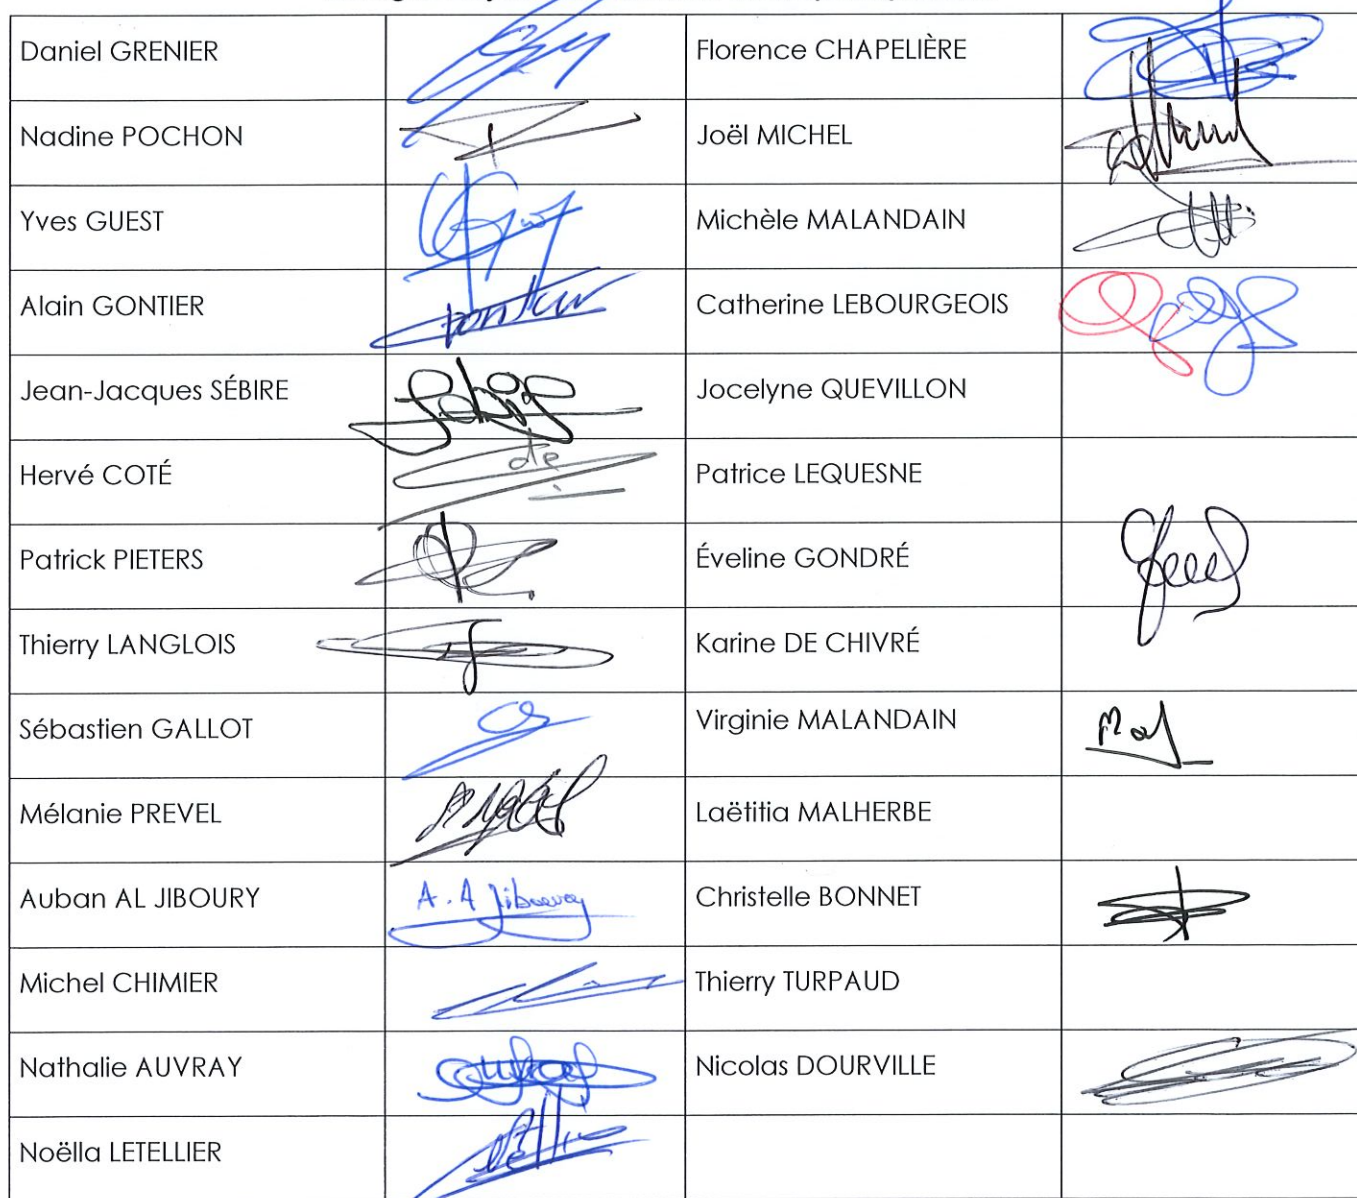 Daniel GRENIER
Florence CHAPELIÈRE
Nadine POCHON
Joël MICHEL
Yves GUEST
Michèle MALANDAIN
Alain GONTIER
Catherine LEBOURGEOIS
Jean-Jacques SÉBIRE
Jocelyne QUEVILLON
Hervé COTÉ
Patrice LEQUESNE
Patrick PIETERS
Éveline GONDRÉ
Thierry LANGLOIS
Karine DE CHIVRÉ
Sébastien GALLOT
Virginie MALANDAIN
Mélanie PREVEL
Laëtitia MALHERBE
Auban AL JIBOURY
A. A Jiboury
Christelle BONNET
Michel CHIMIER
Thierry TURPAUD
Nathalie AUVRAY
Nicolas DOURVILLE
Noëlla LETELLIER